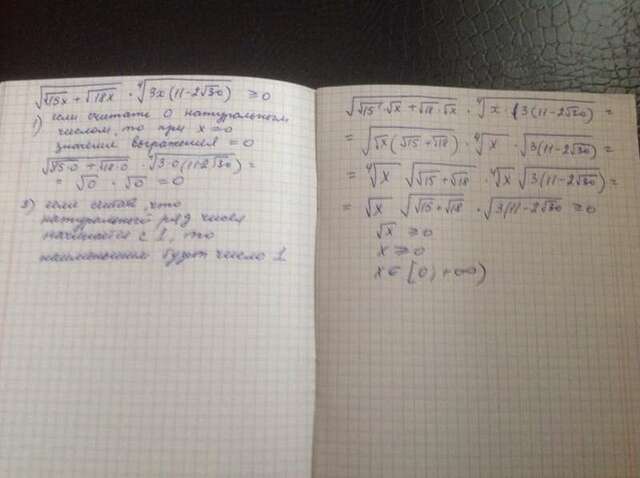 √(√15x + √18x) · ⁴√(3x(11-2√30)) ≥ 0
1) если считать 0 натуральным
числом, то при x = 0
значение выражения = 0
√(√15·0 + √18·0) · ⁴√(3·0(11-2√30)) =
= √0 · √0 = 0
2) если считать, что
натуральный ряд чисел
начинается с 1, то
наименьшим будет число 1
√(√15 · √x + √18 · √x) · ⁴√(x (3(11-2√30)) =
= √(√x(√15 + √18)) · ⁴√x · √(3(11-2√30)) =
= ⁴√x √(√15 + √18) · ⁴√x √(3(11-2√30)) =
= √x √(√15 + √18) · √(3(11-2√30)) ≥ 0
√x ≥ 0
x ≥ 0
x ∈ [0; +∞)